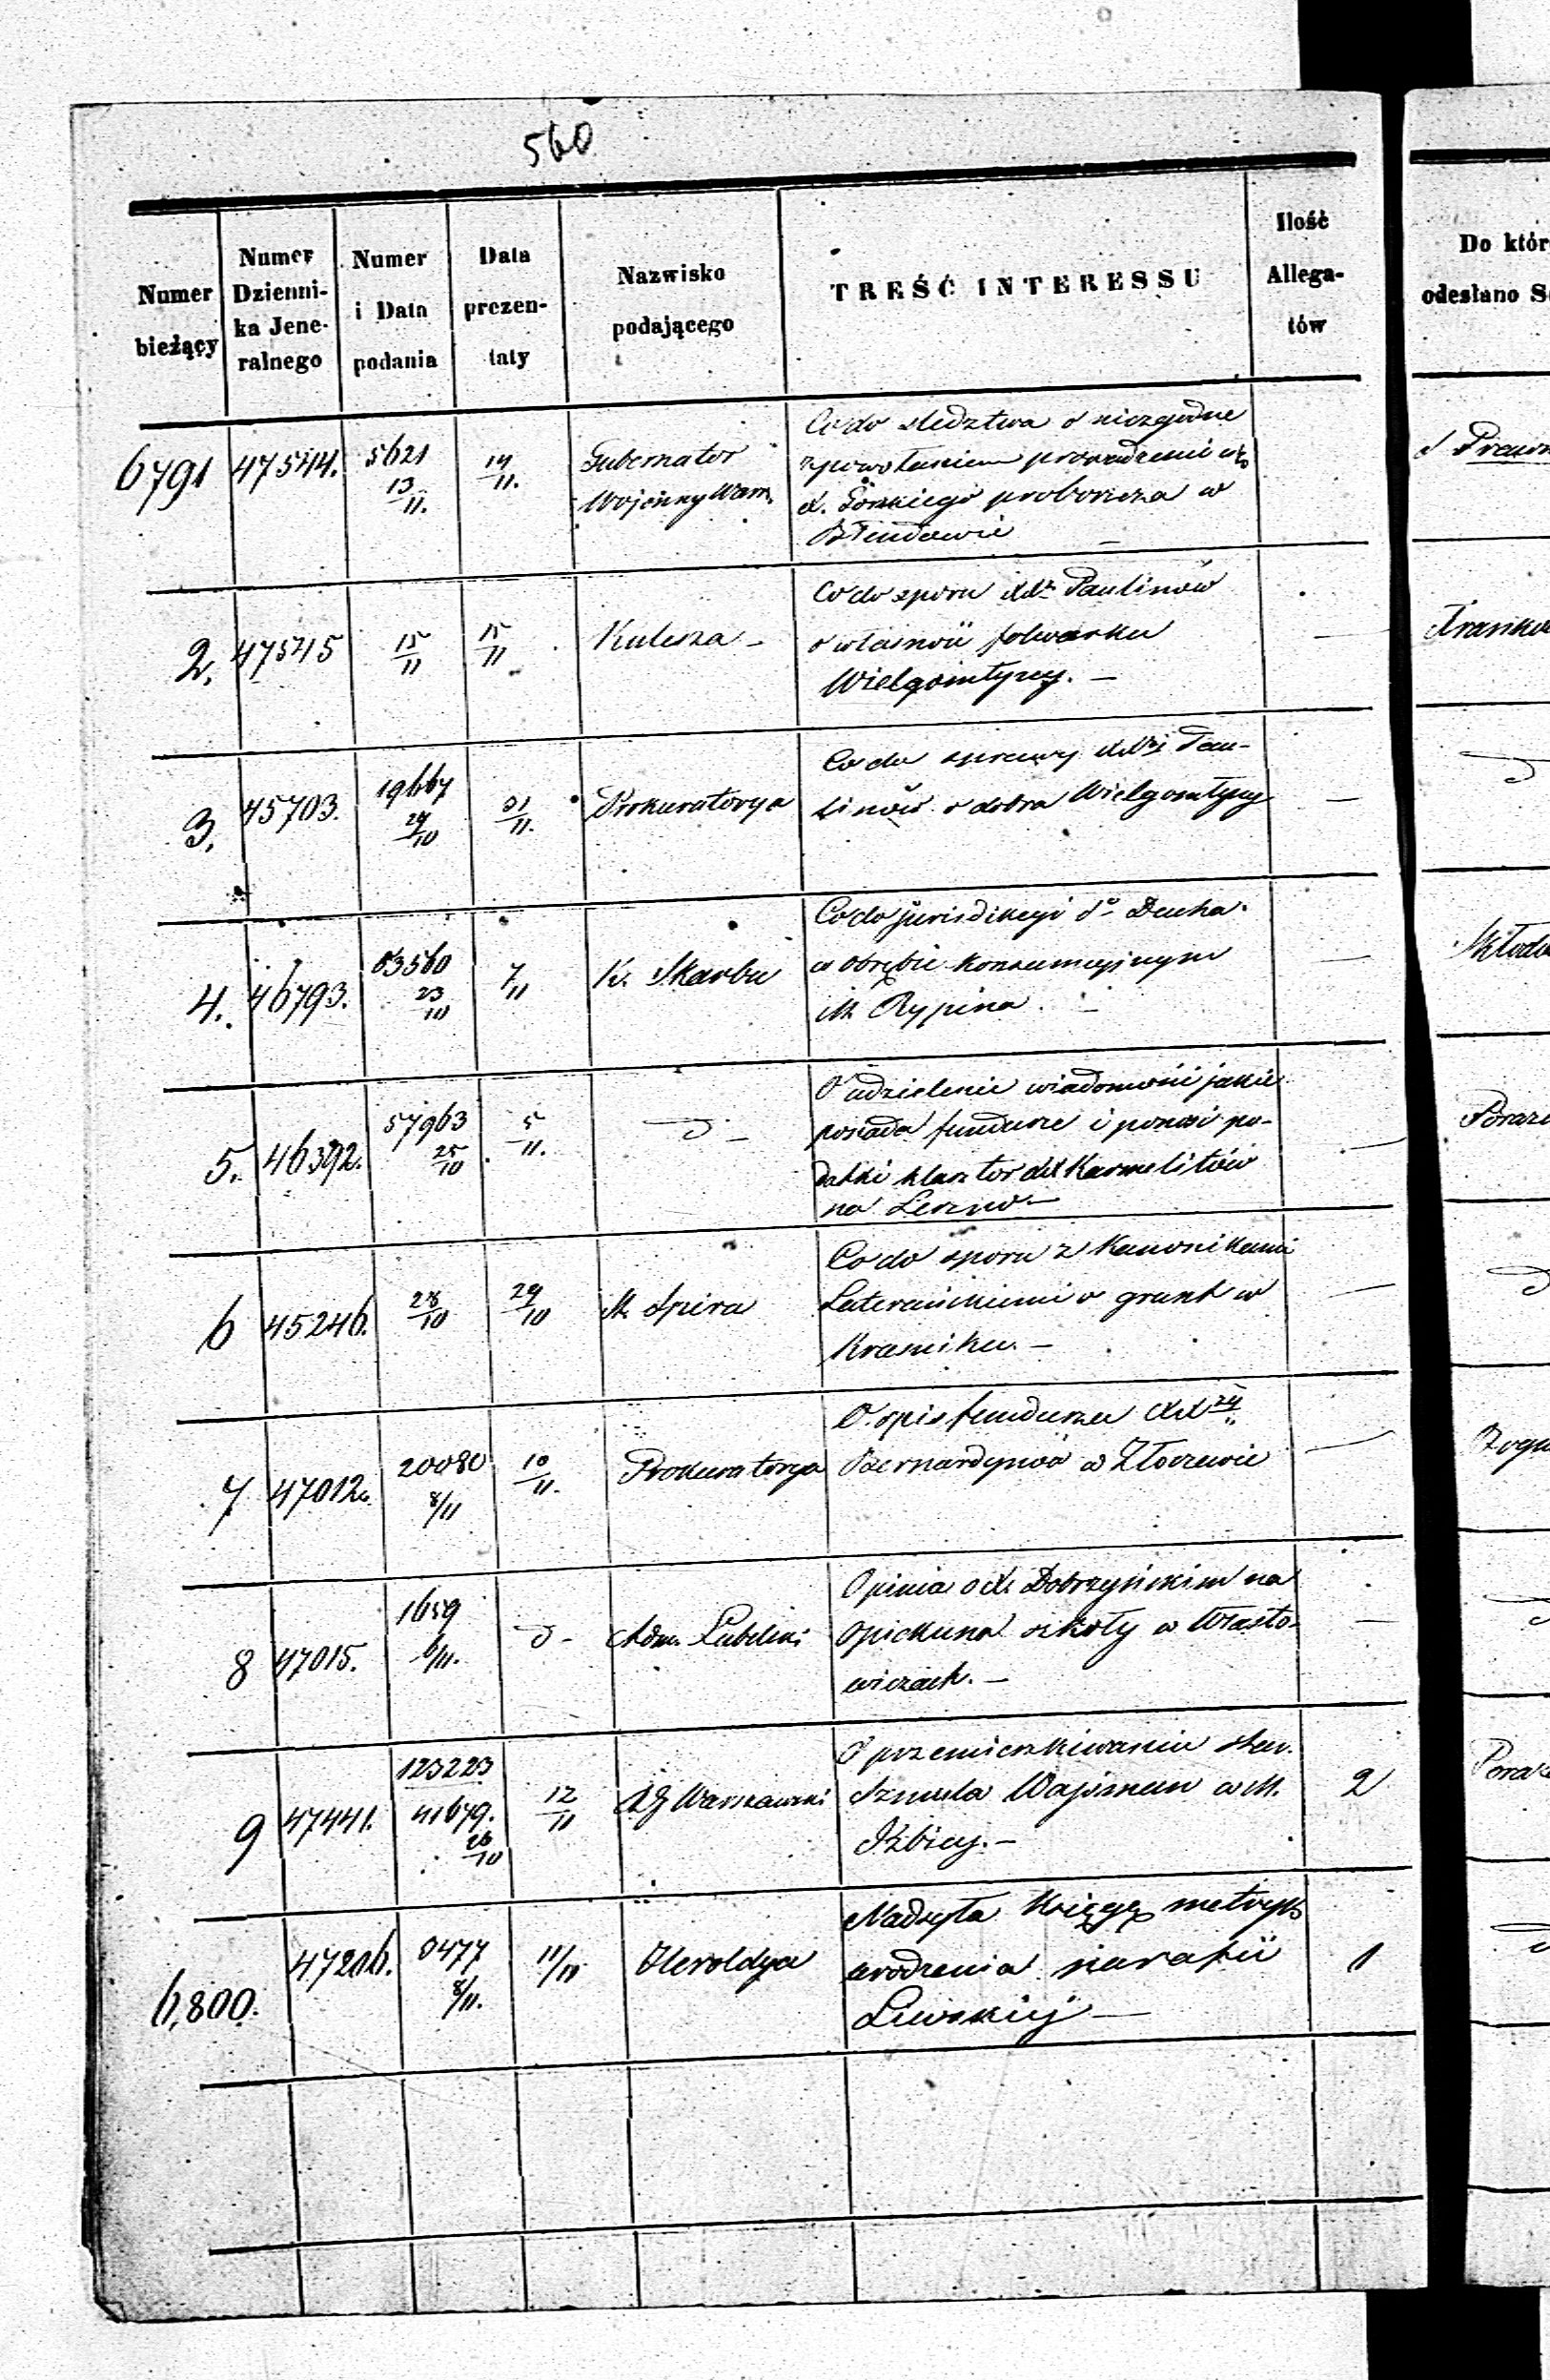 560
Numer bieżący | Numer Dzienni-ka Jene-ralnego | Numer i Data podania | Data prezen-taty | Nazwisko podającego | TREŚĆ INTERESSU | Ilość Allega-tów | Do któr odesłano S
6791 | 47544. | 5621 13/11. | 14/11. | Gubernator Wojenny Warsz.
Co do sledztwa o niezgodne
z powołaniem prowadzenie się
X. Górskiego proboszcza w
2. | 47545 | 15/11 | 15/11 | Kulesza —
Co do sporu XXr Paulinów
o własność folwarku
Wielgomłyny. —
3. | 45703. | 19667 29/10 | 01/11. | Prokuratorya | —
Co do sprawy XXży Pau-
linów o dobra Wielgomłyny
4. | 46793. | 63560 23/10 | 7/11 | K. Skarbu | —
Co do jurisdikcyi So Ducha
w obrębie konsumcyjnym
M. Rypina. —
5. | 46392. | 57963 25/10 | 5/11. | d — | —
O udzielenie wiadomości jakie
posiada fundusze i ponosi po-
datki klasztor XX Karmelitów
na Lesznie —
6 | 45246. | 28/10 | 29/10 | M. Spira | —
Co do sporu z Kanonikami
Laterańskiemi o grunt w
Krasniku. —
7 | 47012. | 20080 8/11 | 10/11. | Prokuratorya | —
O spis funduszu XXży
Bernardynów w Złoczewie
8 | 47015. | 1659 6/11. | d — | Adm. Lubelski | —
Opinia o X. Dobrzyńskim na
Opiekuna szkoły w Włosto-
wicach. —
9 | 47441. | 123223 41679. 26/10 | 12/11 | RG Warszawski | 2
O przemieszkiwaniu star.
Szmula Wajsman w M.
Izbicy. —
6,800. | 47206. | 0477 8/11. | 11/11 | Heroldya | 1
Nadsyła Księgę metryk
urodzenia parafii
Liwskiej —